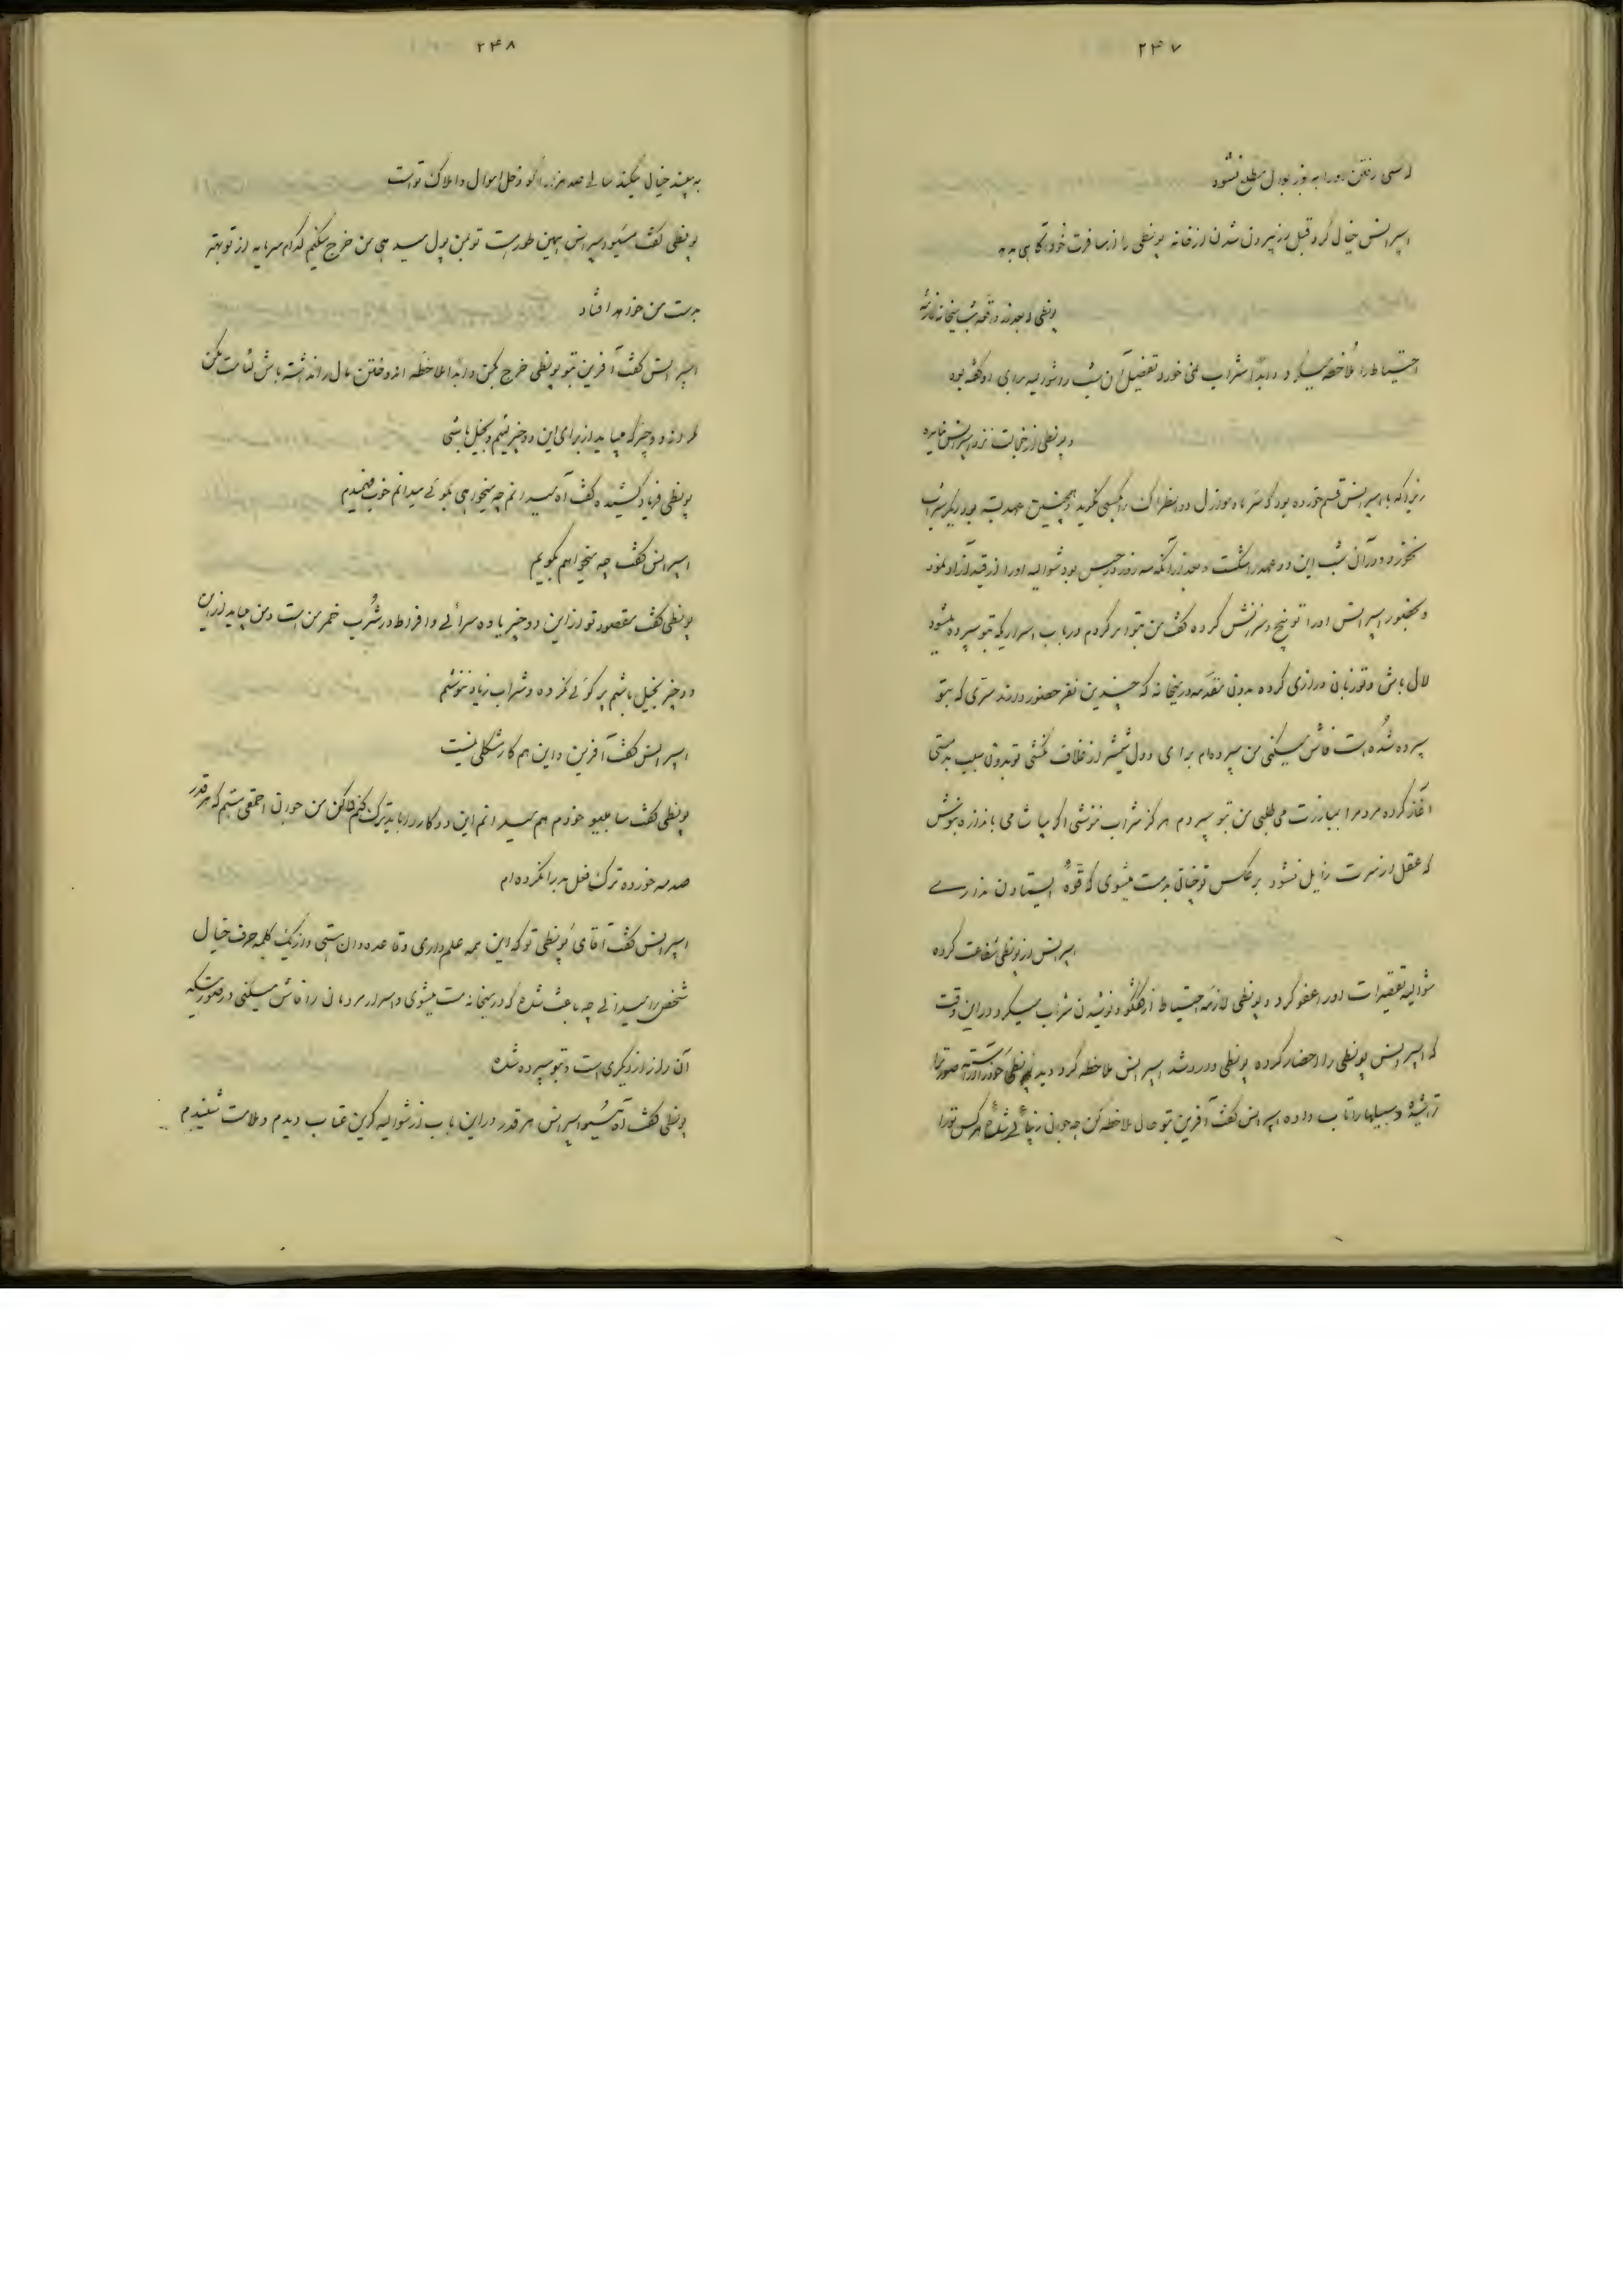 ۲۴۷
که سی رفتن او را به بوردل مطلع نشود
اسپرانس خیال کرد قبل از بیرون شدن از خانه پونطی را از مسافرت خود آگاهی بدهد
پونطی که بعد از واقعه شب میخانه
احتیاط را ملاحظه میکرد و ابداً شراب نمی خورد و تفصیل آن شب را شوالیه برای او گفته بود
و پونطی از خجالت نزد اسپرانس
زیرا که با اسپرانس قسم خورده بود که سر مادموازل دانطراک را بکسی نگوید و همچنین عهد بسته بود دیگر شراب
نخورد و در آن شب این دو عهد را شکست و بعد از آنکه سه روز در حبس بود شوالیه او را از قید آزاد نمود
و بحضور اسپرانس او را توبیخ و سرزنش کرده گفت من بتو امر کردم در باب اسراریکه بتو سپرده میشود
لال باش و تو زبان درازی کرده بدون مقدمه در میخانه که چندین نفر حضور دارند سری که بتو
سپرده شده است فاش میکنی من سپرده ام برای دول شمشیر از غلاف نکشی تو بدون سبب بدمستی
آغاز کرده مردم را بمبارزت می طلبی من بتو سپردم هرگز شراب ننوشی اگر می با اندازه بنوش
که عقل از سرت زایل نشود برعکس تو چنان بدمست میشوی که قوه ایستادن نداری
اسپرانس از پونطی شفاعت کرده
شوالیه تقصیرات او را عفو کرد و پونطی لازمه احتیاط از گفتگو و نوشیدن شراب میکرد در این وقت
که اسپرانس پونطی را احضار کرده پونطی وارد شد اسپرانس ملاحظه کرد دید پونطی خود را آراسته صورت را
تراشیده و سبیلها را تاب داده اسپرانس گفت آفرین بتو حال ملاحظه کن چه جوان شده هر کس تو را
۲۴۸
به بیند خیال میکند سالی صد هزار دخل اموال و املاک تو است
پونطی گفت مسیو اسپرانس بهمین طور است تو بمن پول میدهی من خرج میکنم کدام سرمایه از تو بهتر
بدست من خواهد افتاد
اسپرانس گفت آفرین بتو پونطی خرج بکن و ابدا ملاحظه اندوختن مال را نداشته باش لئامت مکن
مگر در دو چیز که میباید از برای این دو چیز لئیم و بخیل باشی
پونطی فریاد کشیده گفت آه میدانم چه میخواهی بگوئی میدانم خوب فهمیدم
اسپرانس گفت چه میخواهم بگویم
پونطی گفت مقصود تو از این دو چیز یاوه سرائی و افراط در شرب خمر من است و من میباید از این
دو چیز بخیل باشم پر گوئی نکرده و شراب زیاد ننوشم
اسپرانس گفت آفرین و این هم کار مشکلی نیست
پونطی گفت سامبیو خودم هم میدانم این دو کار را باید ترک کنم لاکن من حیوان احمقی هستم که هر قدر
صدمه خورده ترک فعل بد را نکرده ام
اسپرانس گفت آقای پونطی تو که این همه علم داری و قاعده دان هستی و از یک کلمه حرف خیال
شخص را میدانی چه باعث شده که در میخانه مست میشوی و اسرار مردمان را فاش میکنی در صورتیکه
آن راز از دیگری است و بتو سپرده شده
پونطی گفت آه مسیو اسپرانس هر قدر در این باب از شوالیه کرین عتاب دیدم و ملامت شنیدم